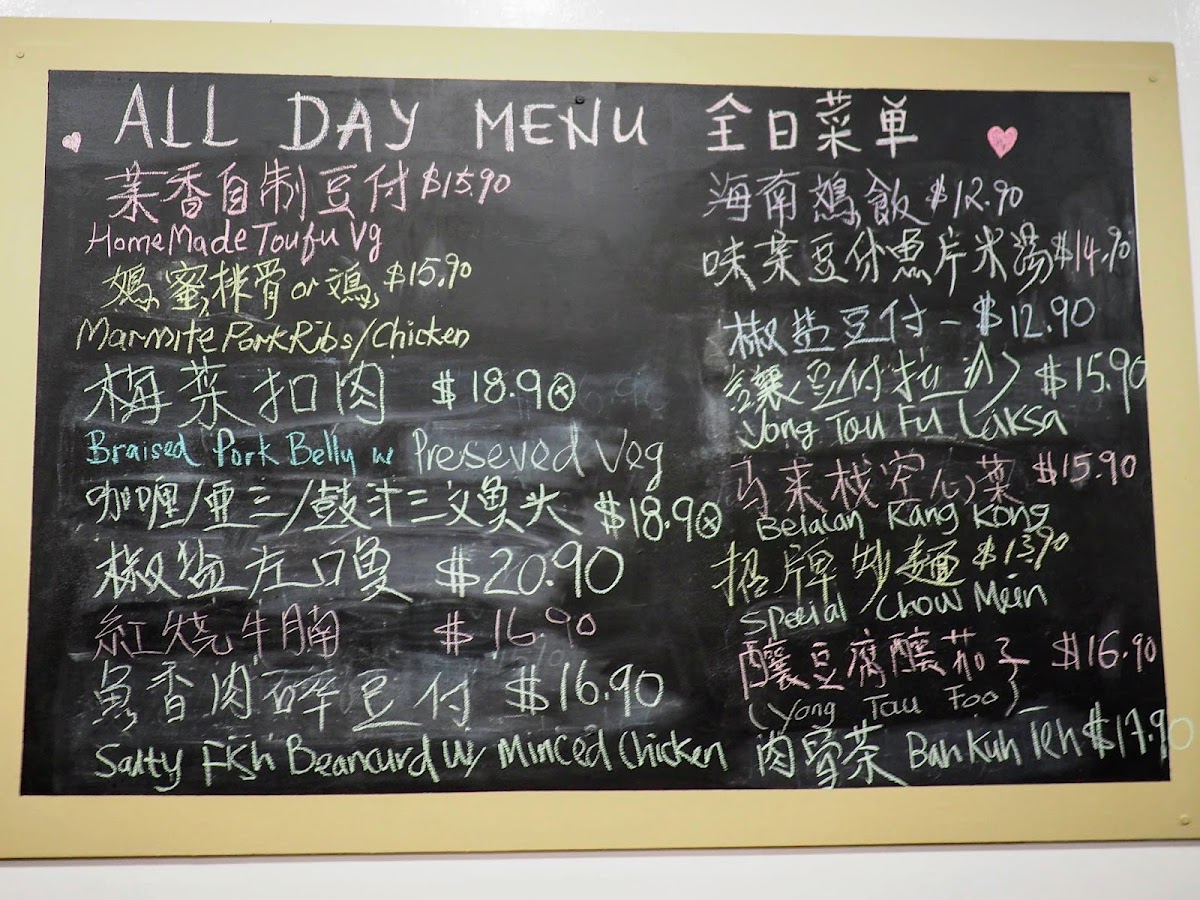 ALL DAY MENU 全日菜单
茉香自制豆付 $15.90
HomeMade Toufu Vg
蜜排骨 or 鸡 $15.90
Marmite Pork Ribs/Chicken
梅菜扣肉 $18.90
Braised Pork Belly w Preseved Veg
咖喱/亚三/鼓汁三文魚头 $18.90
椒盐左口魚 $20.90
紅烧牛腩 $16.90
魚香肉碎豆付 $16.90
Salty Fish Beancurd w/ Minced Chicken
海南鸡飯 $12.90
味菜豆付魚片米湯 $14.90
椒盐豆付 - $12.90
讓豆付拉沙 $15.90
Yong Tou Fu Laksa
马来栈空心菜 $15.90
Belacan Kang Kong
招牌炒麵 $13.90
Special Chow Mein
釀豆腐釀茄子 $16.90
(Yong Tau Foo)
肉骨茶 Bah Kuh Teh $17.90